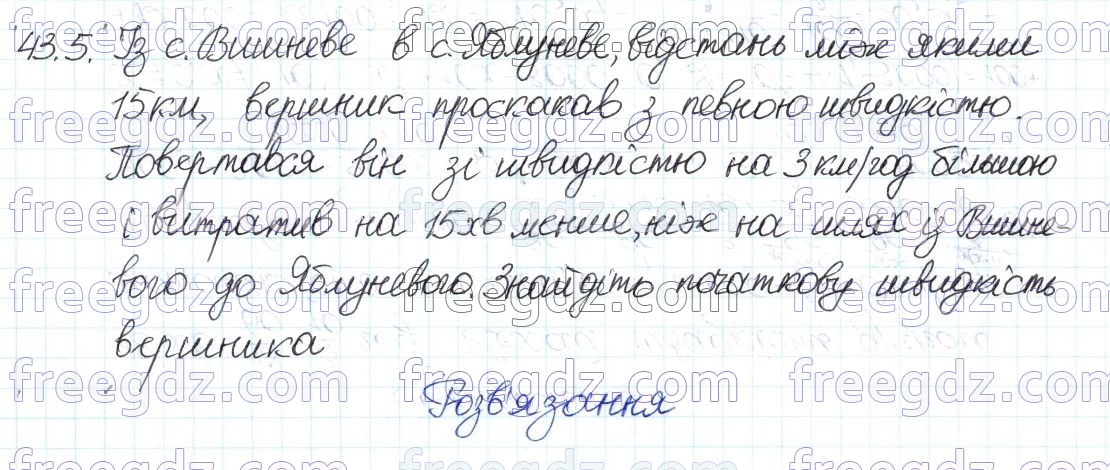 43.5. Із с. Вишневе в с. Яблуневе, відстань між якими
15 км, вершник проскакав з певною швидкістю.
Повертався він зі швидкістю на 3 км/год більшою
і витратив на 15 хв менше, ніж на шлях із Вишне-
вого до Яблуневого. Знайдіть початкову швидкість
вершника
Розв'язання
freegdz.com